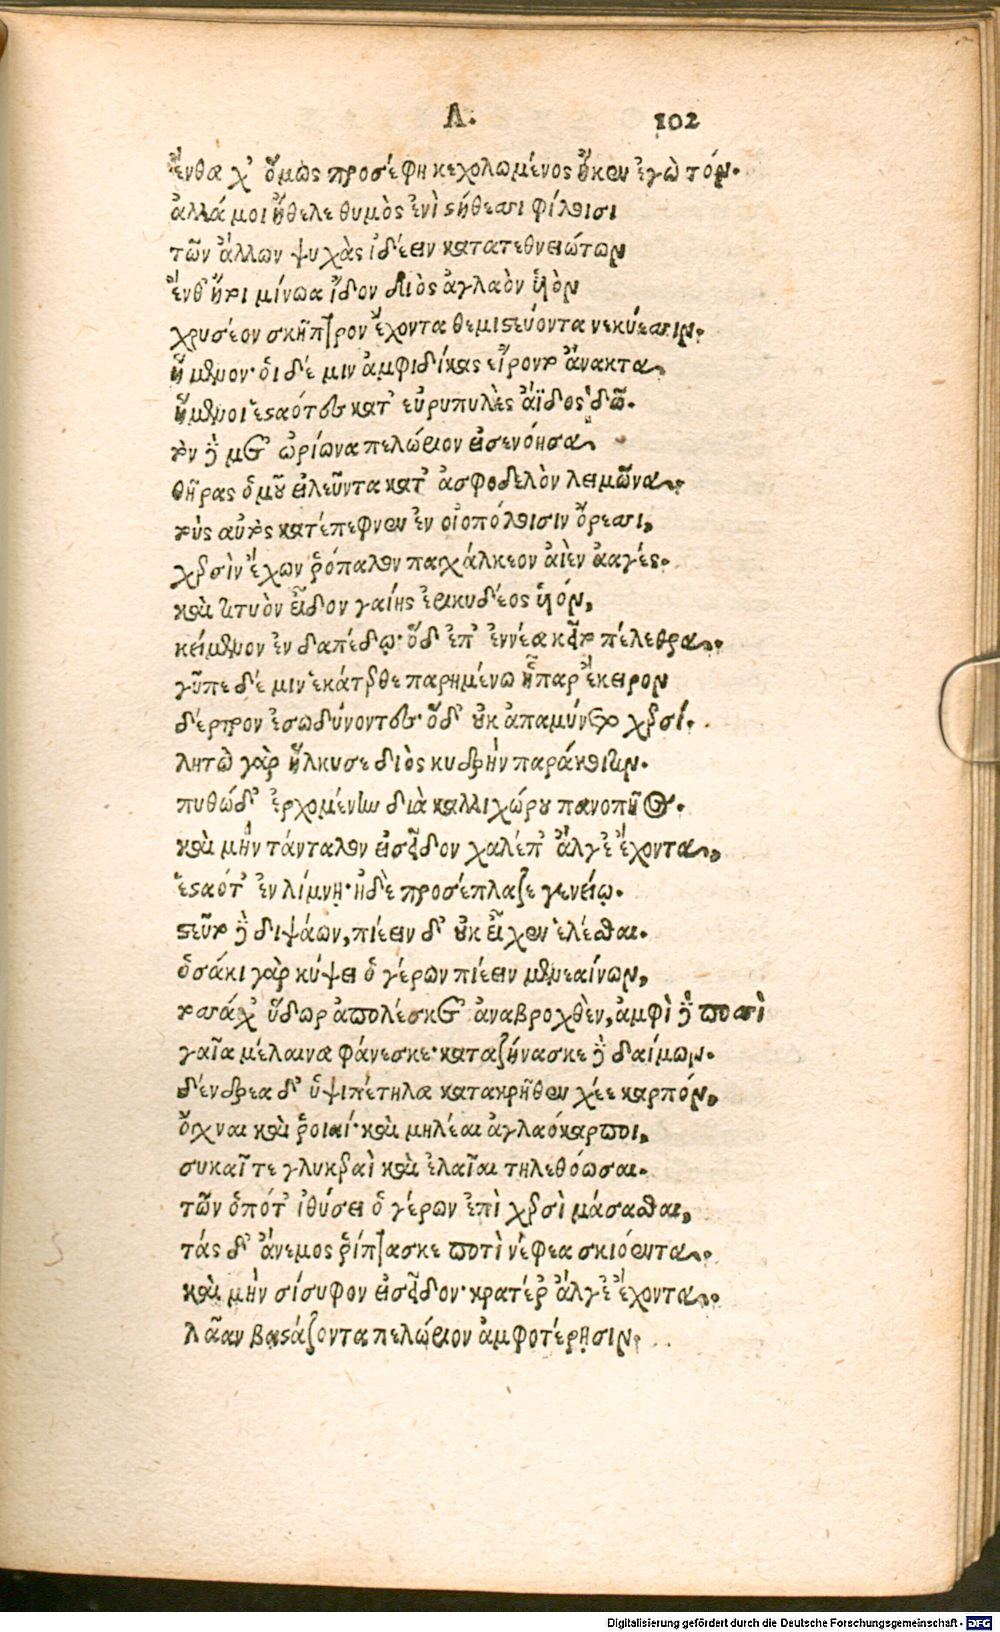 Λ. 102
ἔνθα χ' ὅμως προσέφη κεχολωμένος ἤκεν ἐγὼ τόν.
ἀλλά μοι ἤθελε θυμὸς ἐνὶ στήθεσσι φίλοισι
τῶν ἄλλων ψυχὰς ἰδέειν κατατεθνειώτων
ἔνθ' ἤτοι μίνωα ἴδον διὸς ἀγλαὸν υἱὸν
χρυσέον σκῆπτρον ἔχοντα θεμιστεύοντα νεκύεσσιν.
ἥμενον· ὁι δέ μιν ἀμφιδίκας εἴροντο ἄνακτα,
ἥμενοι ἑσταότες κατ' εὐρυπυλὲς ἄϊδος δῶ.
τὸν δὲ μετ' ὠρίωνα πελώριον εἰσενόησα
θῆρας ὁμοῦ εἰλεῦντα κατ' ἀσφοδελὸν λειμῶνα,
τοὺς αὐτὸς κατέπεφνεν ἐν οἰοπόλοισιν ὄρεσσι,
χερσὶν ἔχων ῥόπαλον παγχάλκεον ἀιὲν ἀαγές.
καὶ τιτυὸν εἶδον γαίης ἐρικυδέος υἱόν,
κείμενον ἐν δαπέδῳ· ὅδ' ἐπ' ἐννέα κεῖτο πέλεθρα,
γῦπε δέ μιν ἑκάτερθε παρημένω ἧπαρ ἔκειρον
δέρτρον ἐσωδύνοντες· ὅδ' οὐκ ἀπαμύνετο χερσί.
λητὼ γὰρ ἥλκυσε διὸς κυδρὴν παράκοιτιν.
πυθώδ' ἐρχομένην διὰ καλλιχώρου πανοπῆος.
καὶ μὴν τάνταλον εἰσεῖδον χαλέπ' ἄλγε' ἔχοντα,
ἑσταότ' ἐν λίμνῃ· ἡδὲ προσέπλαζε γενείῳ.
στεῦτο δὲ διψάων, πίεειν δ' οὐκ εἶχεν ἑλέσθαι.
ὁσάκι γὰρ κύψει ὁ γέρων πίεειν μενεαίνων,
τοσσάχ' ὕδωρ ἀπολέσκετ' ἀναβροχθὲν, ἀμφὶ δὲ ποσσὶ
γαῖα μέλαινα φάνεσκε· καταζήνασκε δὲ δαίμων.
δένδρεα δ' ὑψιπέτηλα κατακρῆθεν χέε καρπόν,
ὄχναι καὶ ῥοιαί· καὶ μηλέαι ἀγλαόκαρποι,
συκαῖ τε γλυκεραὶ καὶ ἐλαῖαι τηλεθόωσαι.
τῶν ὁπότ' ἰθύσει ὁ γέρων ἐπὶ χερσὶ μάσασθαι,
τάς δ' ἄνεμος ῥίπτασκε ποτὶ νέφεα σκιόεντα.
καὶ μὴν σίσυφον εἰσεῖδον· κρατέρ' ἄλγε' ἔχοντα.
λᾶαν βαστάζοντα πελώριον ἀμφοτέρῃσιν.
Digitalisierung gefördert durch die Deutsche Forschungsgemeinschaft - DFG